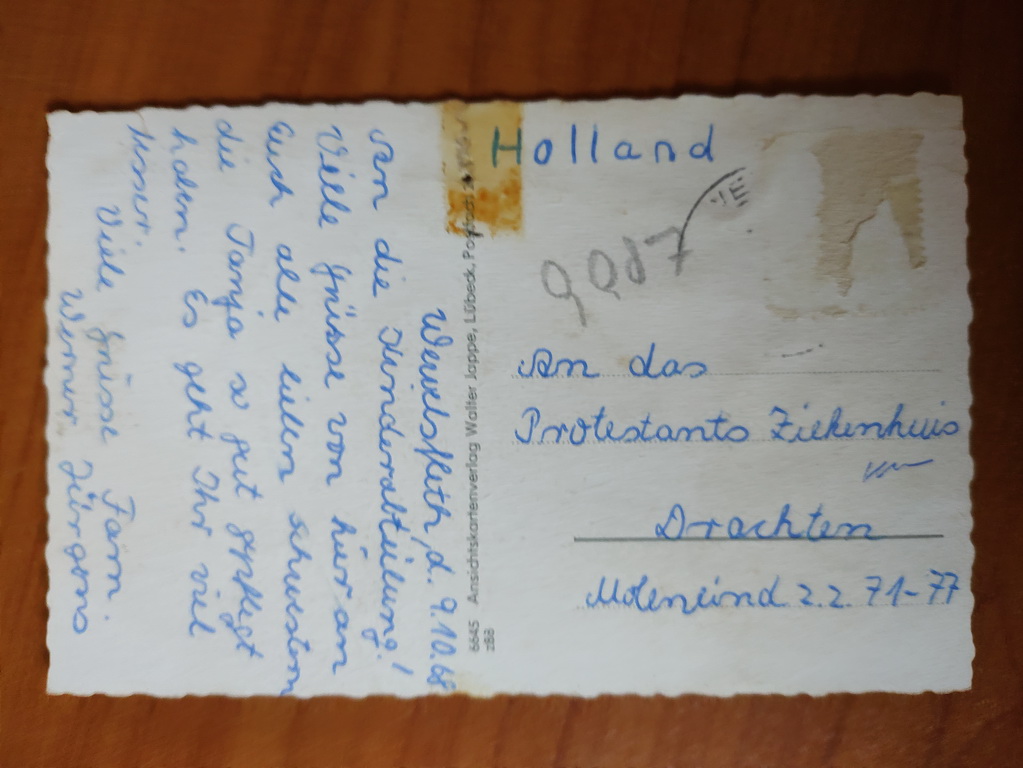 Wewelsfleth, d. 9.10.68
An die Kinderabteilung!
Viele grüsse von hier an
Euch alle lieben schwestern
die Tanja so gut gepflegt
haben. Es geht Ihr viel
besser.
Viele grüsse Fam.
Werner Jürgens
6645 Ansichtskartenverlag Walter Joppe, Lübeck,
288
Holland
9087
An das
Protestants Ziekenhuis
Drachten
Moleneind z.z. 71-77